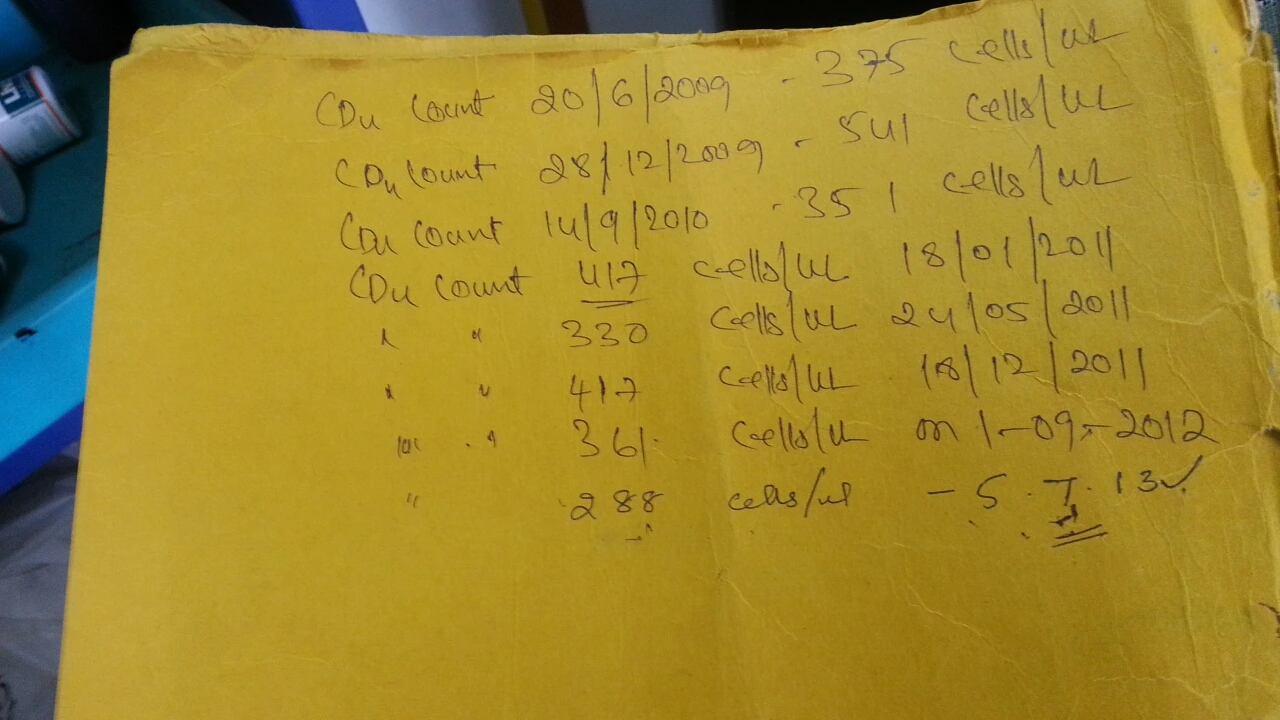 CD4 Count 20/6/2009 - 375 cells/uL
CD4 Count 28/12/2009 - 541 cells/uL
CD4 Count 14/9/2010 - 351 cells/uL
CD4 Count 417 cells/uL 18/01/2011
" " 330 cells/uL 24/05/2011
" " 417 cells/uL 18/12/2011
" " 361 cells/uL on 1-09-2012
" 288 cells/ul - 5.7.13